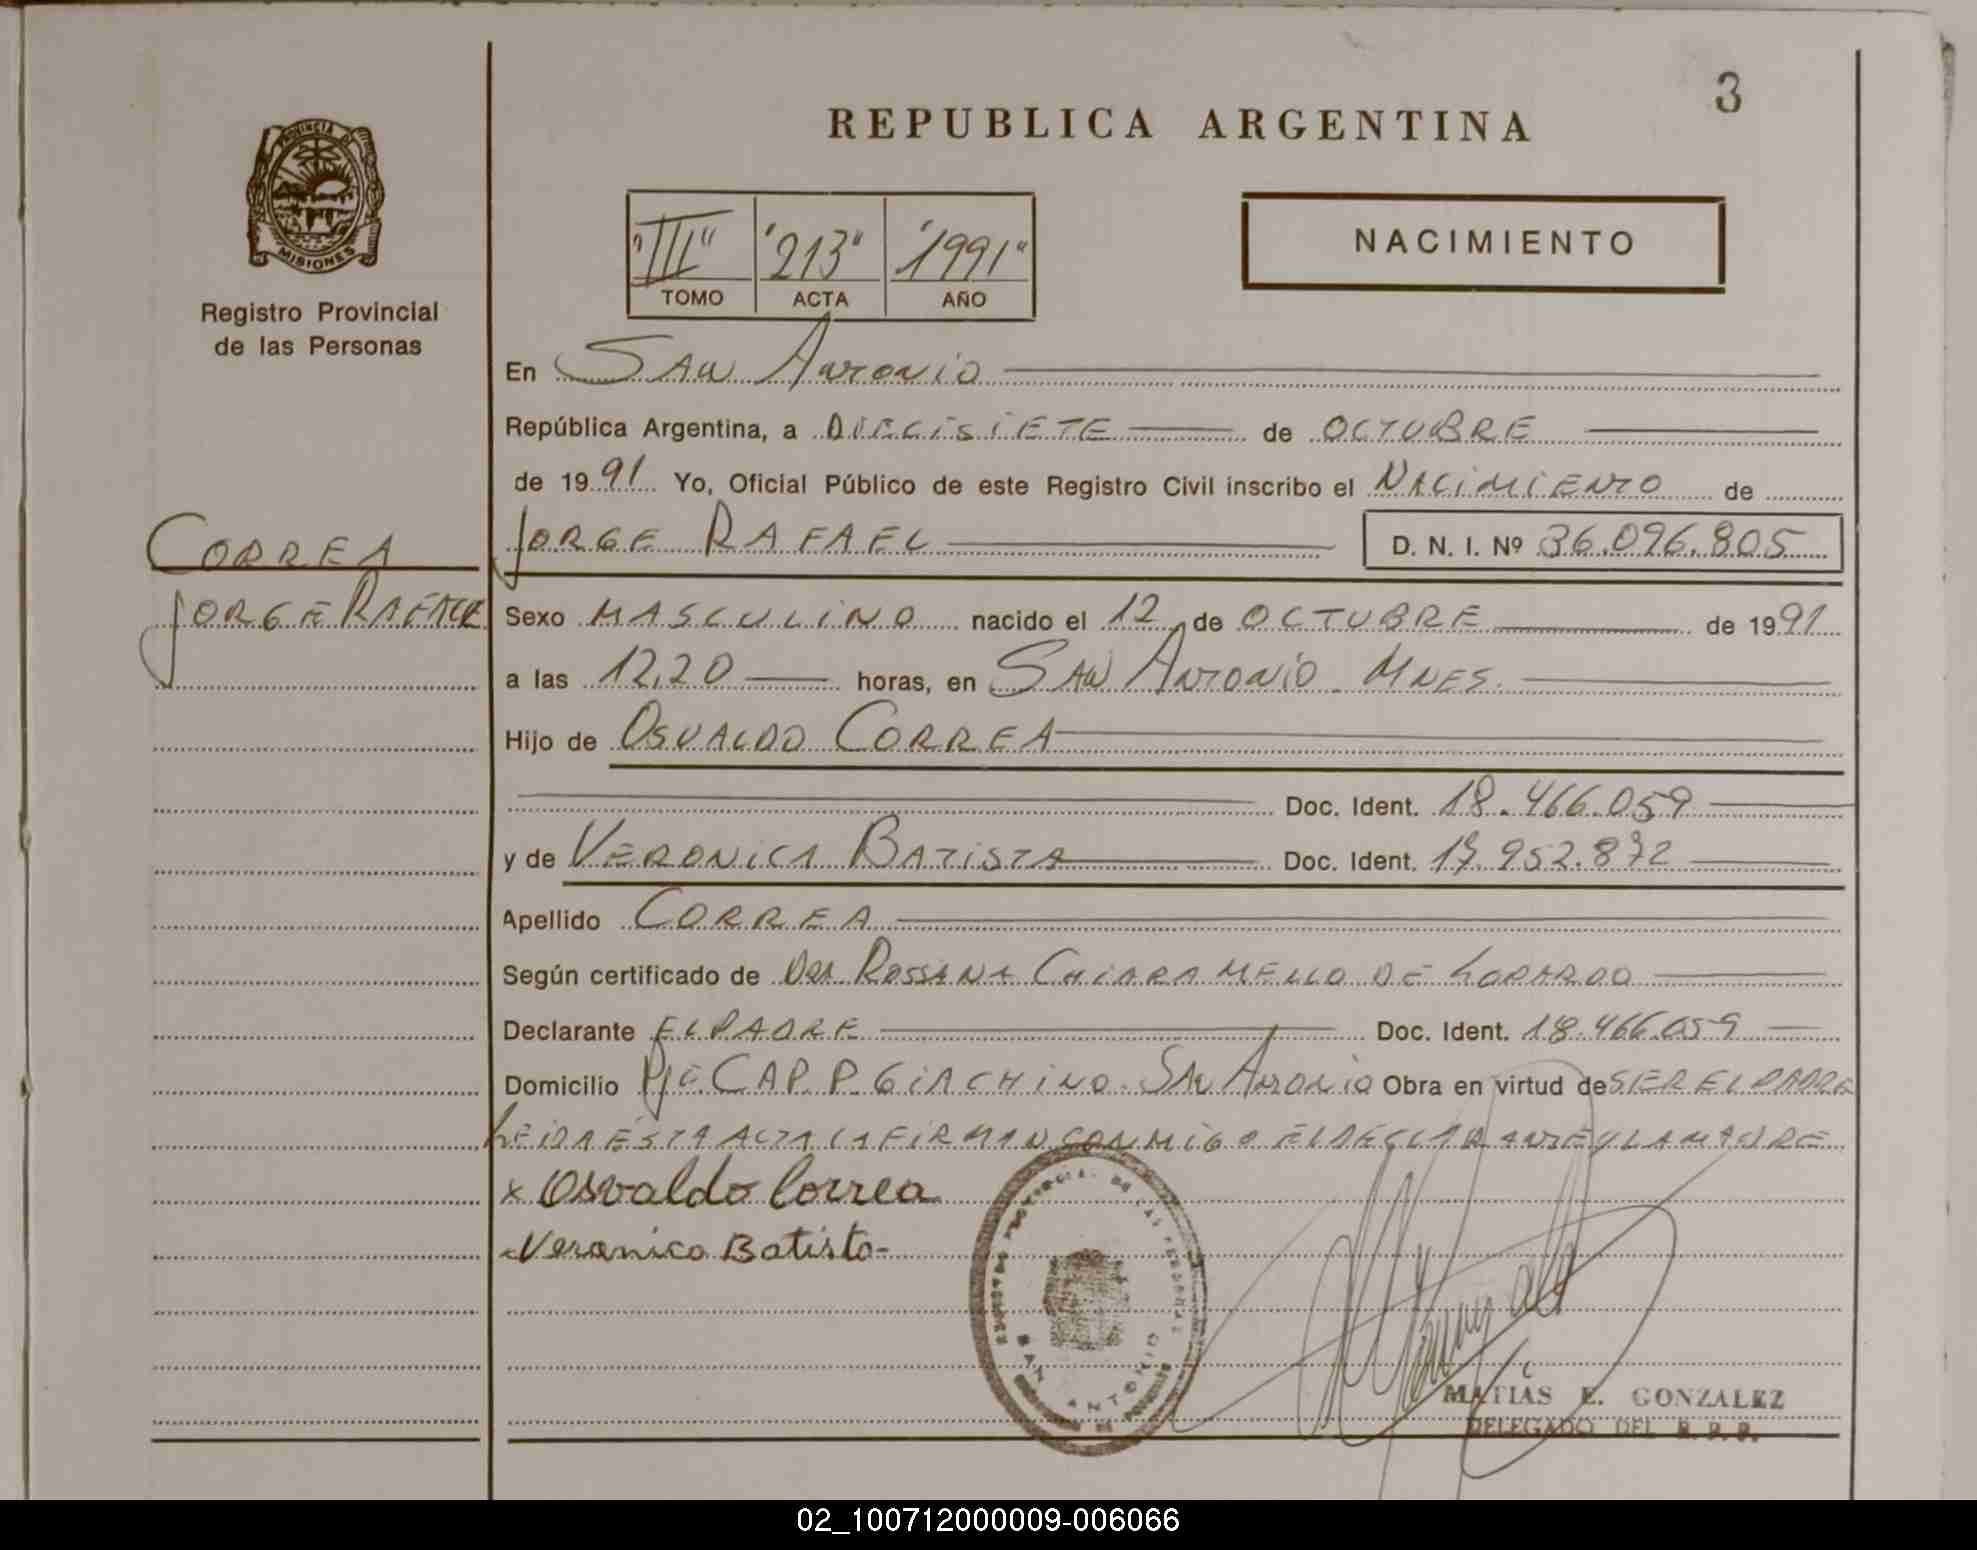 3
REPUBLICA ARGENTINA
PROVINCIA DE
MISIONES
Registro Provincial
de las Personas
"III" "213" "1991"
TOMO ACTA AÑO
NACIMIENTO
En San Antonio
República Argentina, a DIECISIETE de OCTUBRE
de 1991 Yo, Oficial Público de este Registro Civil inscribo el NACIMIENTO de
JORGE RAFAEL D. N. I. Nº 36.096.805
CORREA
JORGE RAFAEL
Sexo MASCULINO nacido el 12 de OCTUBRE de 1991
a las 12,20 horas, en SAN ANTONIO. MNES.
Hijo de OSVALDO CORREA
Doc. Ident. 18.466.059
y de VERONICA BATISTA Doc. Ident. 17.952.872
Apellido CORREA
Según certificado de DRA ROSSANA CHIARAMELLO DE
Declarante EL PADRE Doc. Ident. 18.466.059
Domicilio PJE CAP. P. GIACHINO. SAN ANTONIO Obra en virtud de SER EL PADRE
LEIDA ESTA ACTA LA FIRMAN CONMIGO EL DECLARANTE Y LA MADRE
x Osvaldo Correa
Veronica Batista
SAN ANTONIO
MATIAS E. GONZALEZ
DELEGADO DEL R. P. P.
02_100712000009-006066